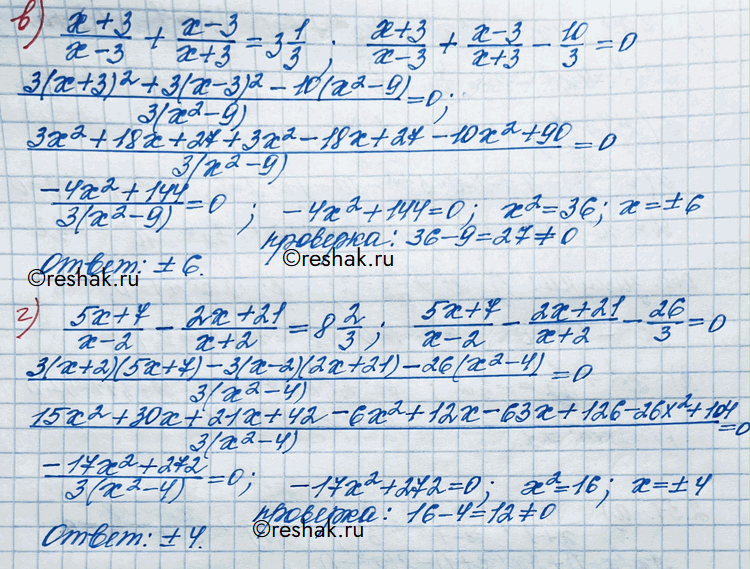 в) (x+3)/(x-3) + (x-3)/(x+3) = 3 1/3; (x+3)/(x-3) + (x-3)/(x+3) - 10/3 = 0
(3(x+3)² + 3(x-3)² - 10(x²-9))/(3(x²-9)) = 0;
(3x² + 18x + 27 + 3x² - 18x + 27 - 10x² + 90)/(3(x²-9)) = 0
(-4x² + 144)/(3(x²-9)) = 0; -4x² + 144 = 0; x² = 36; x = ±6
проверка: 36-9=27≠0
©reshak.ru
Ответ: ±6.
г) (5x+7)/(x-2) - (2x+21)/(x+2) = 8 2/3; (5x+7)/(x-2) - (2x+21)/(x+2) - 26/3 = 0
(3(x+2)(5x+7) - 3(x-2)(2x+21) - 26(x²-4))/(3(x²-4)) = 0
(15x² + 30x + 21x + 42 - 6x² + 12x - 63x + 126 - 26x² + 104)/(3(x²-4)) = 0
(-17x² + 272)/(3(x²-4)) = 0; -17x² + 272 = 0; x² = 16; x = ±4
проверка: 16-4=12≠0
©reshak.ru
Ответ: ±4.